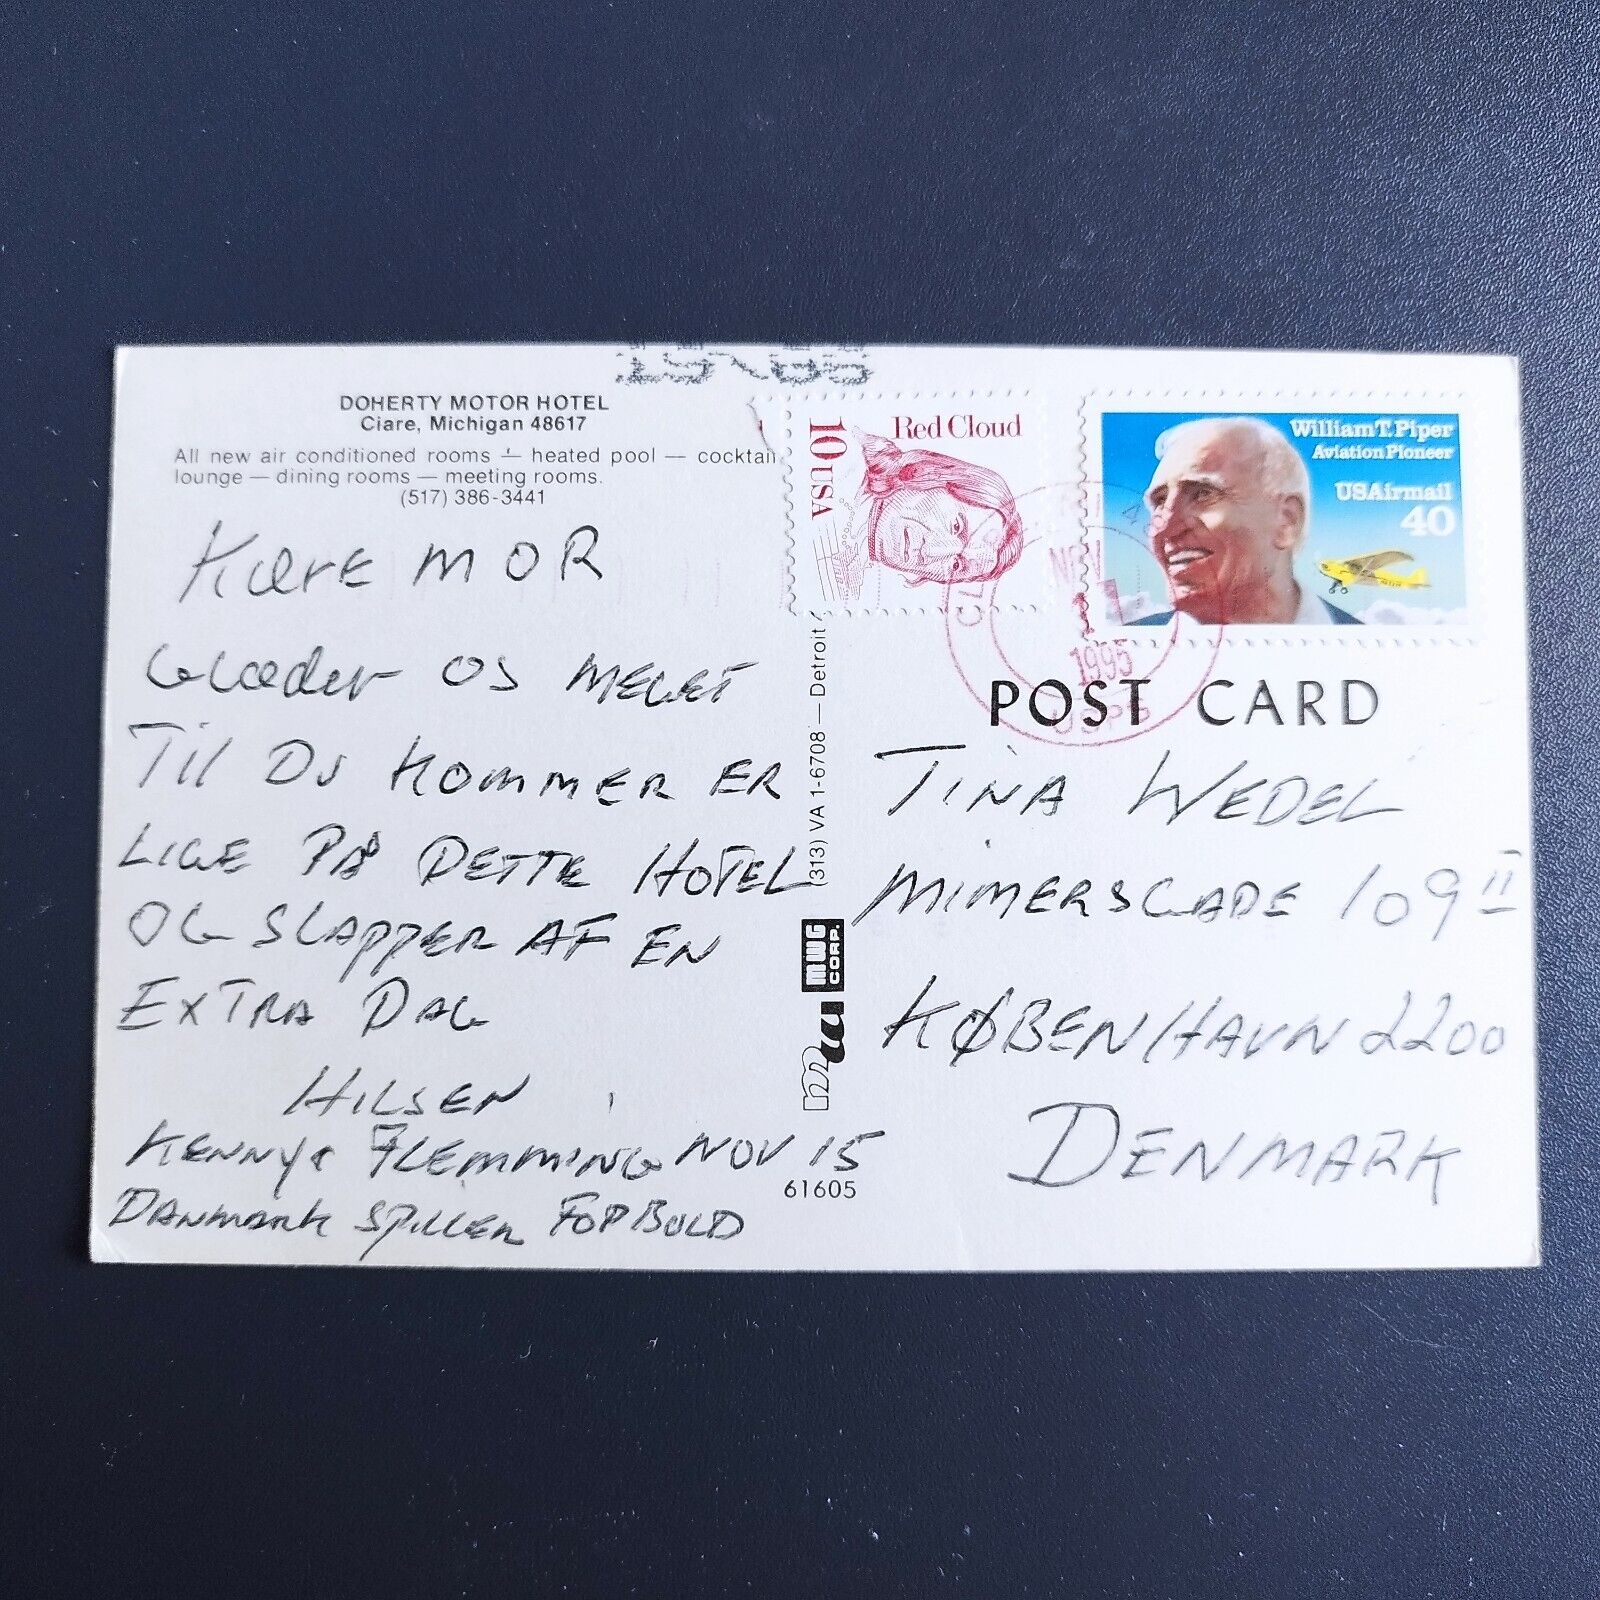 DOHERTY MOTOR HOTEL
Clare, Michigan 48617
All new air conditioned rooms — heated pool — cocktail
lounge — dining rooms — meeting rooms.
(517) 386-3441
Kære MOR
Glæder OS MEGET
Til DU KOMMER ER
LIGE PÅ DETTE HOTEL
OG SLAPPER AF EN
EXTRA DAG
HILSEN
KENNY & FLEMMING NOV 15
DANMARK SPILLER FODBOLD
61605
(313) VA 1-6708 — Detroit
NWG
CORP.
Red Cloud
10 USA
William T. Piper
Aviation Pioneer
USAirmail
40
NOV
1995
USPS
POST CARD
TINA WEDEL
MIMERSGADE 109 II
KØBENHAVN 2200
DENMARK